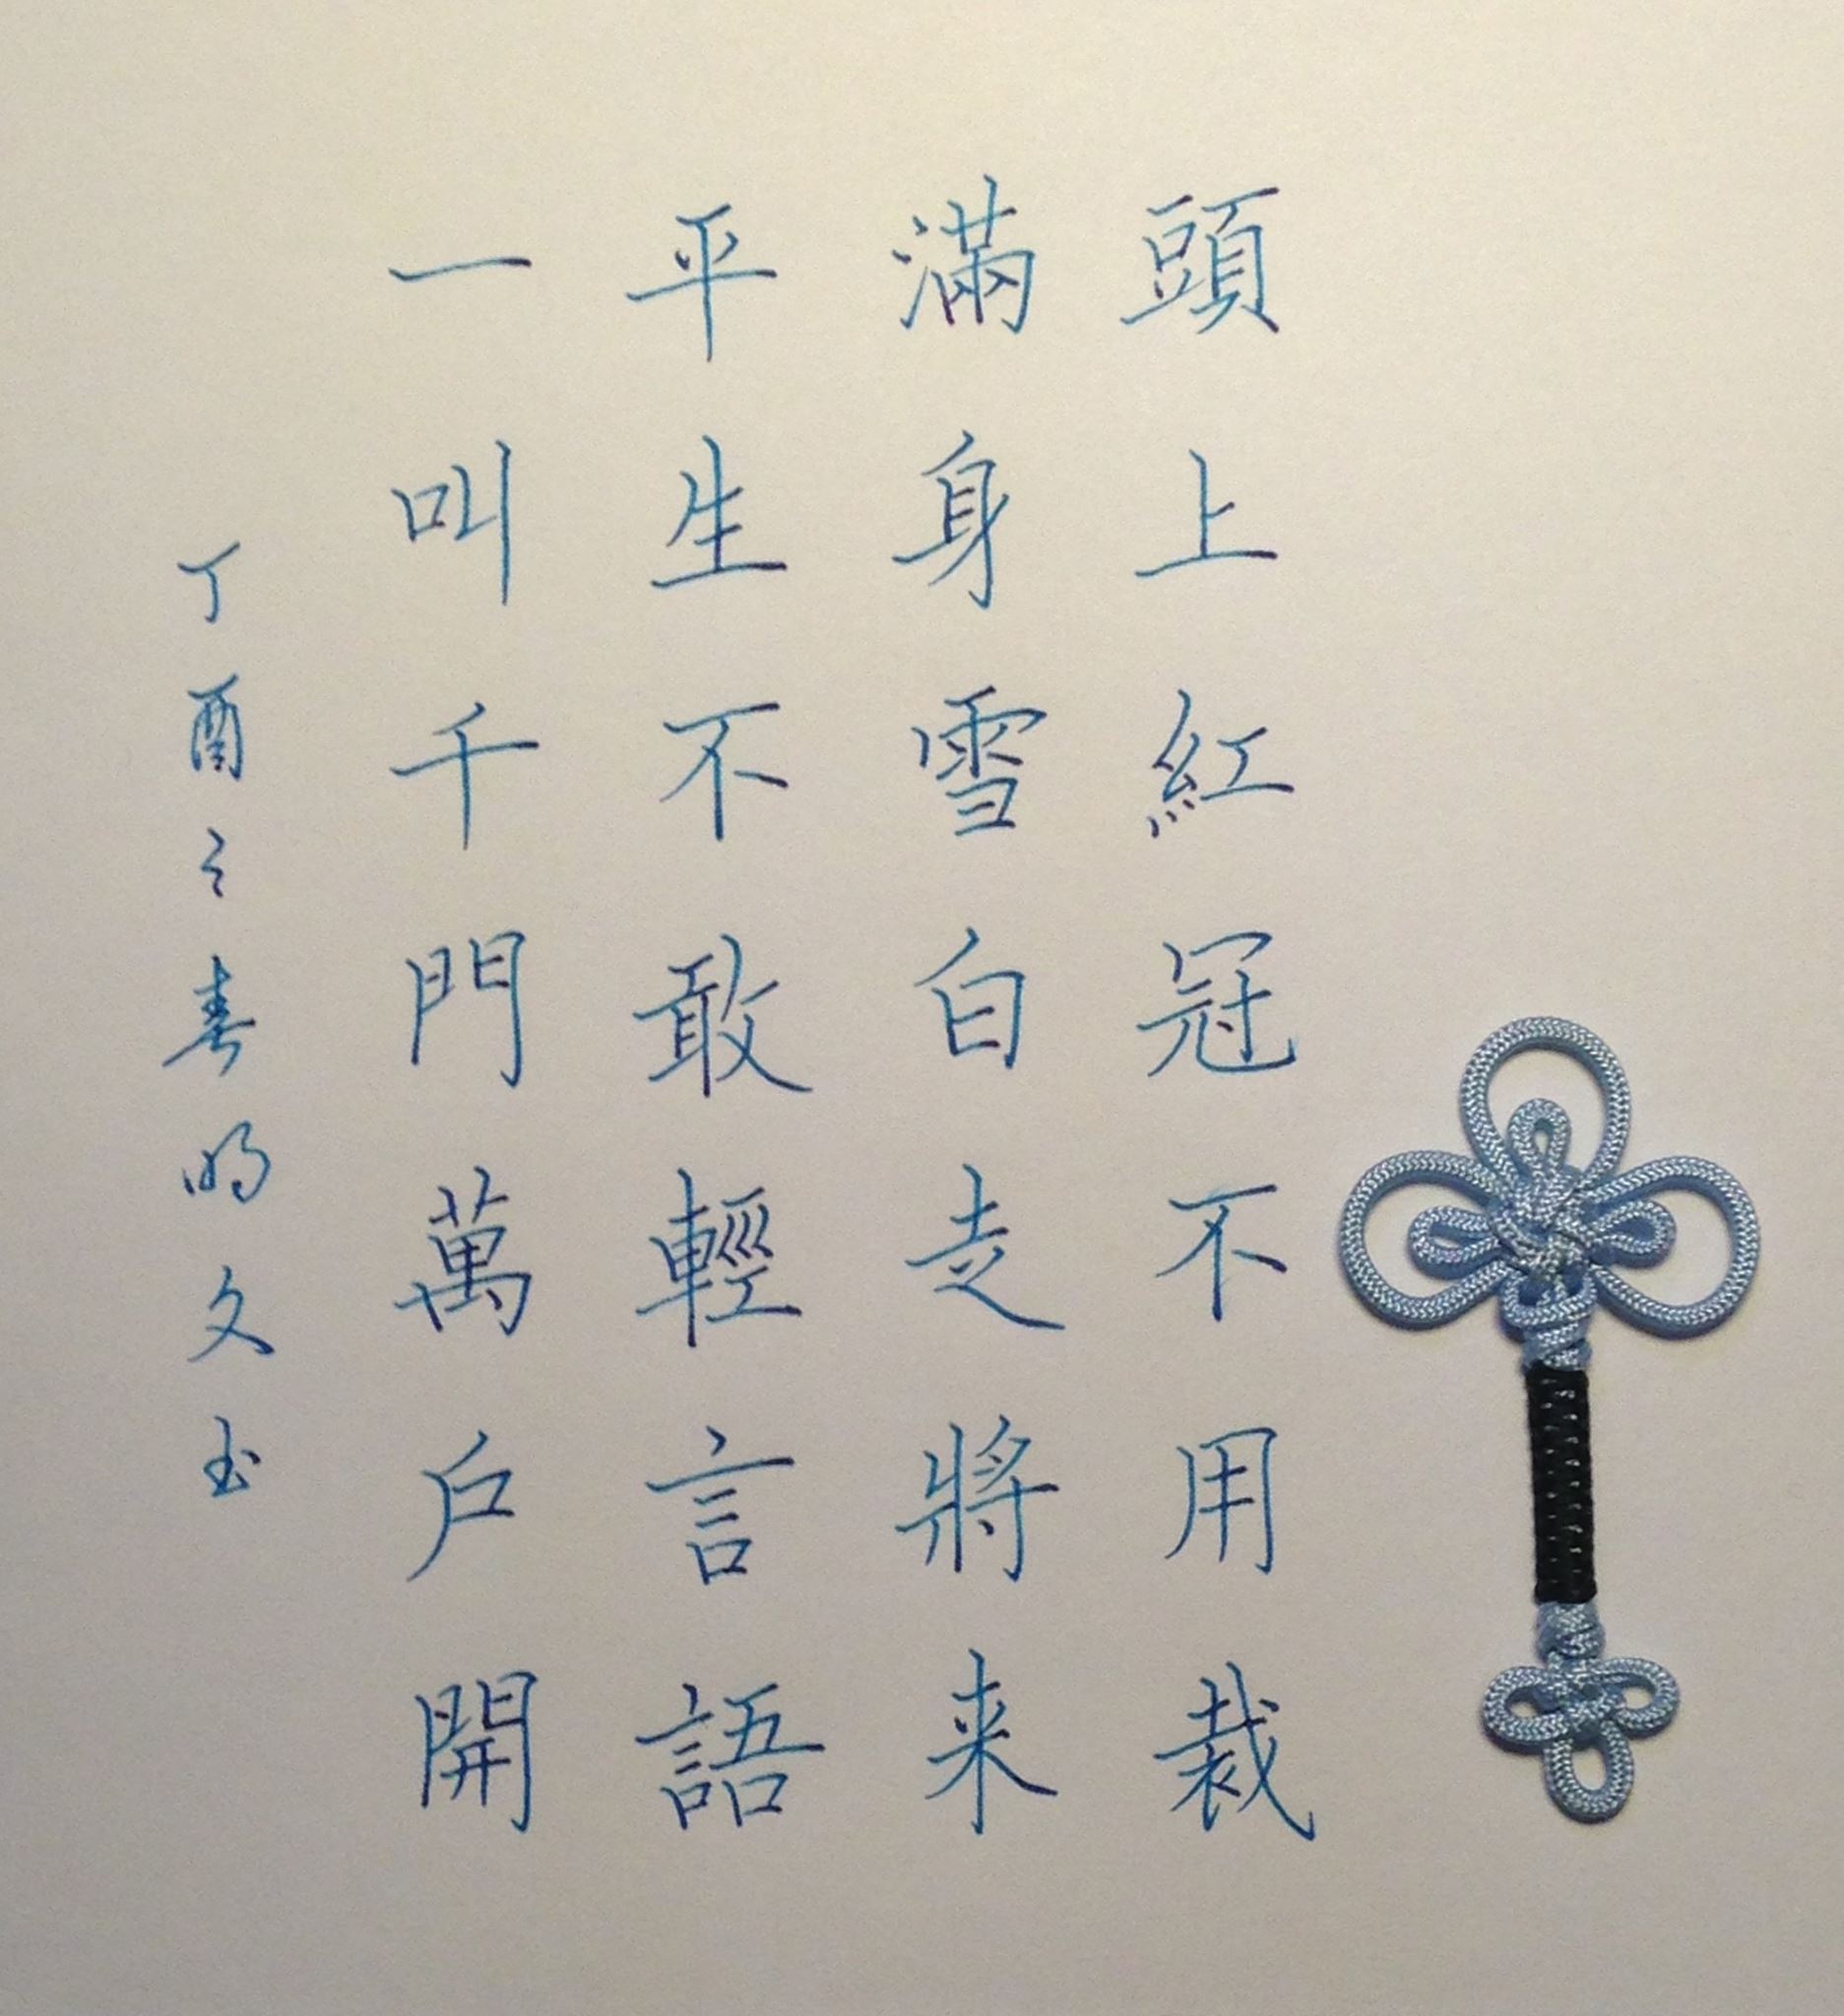 頭上紅冠不用裁
滿身雪白走將来
平生不敢輕言語
一叫千門萬戶開
丁酉之春明文书